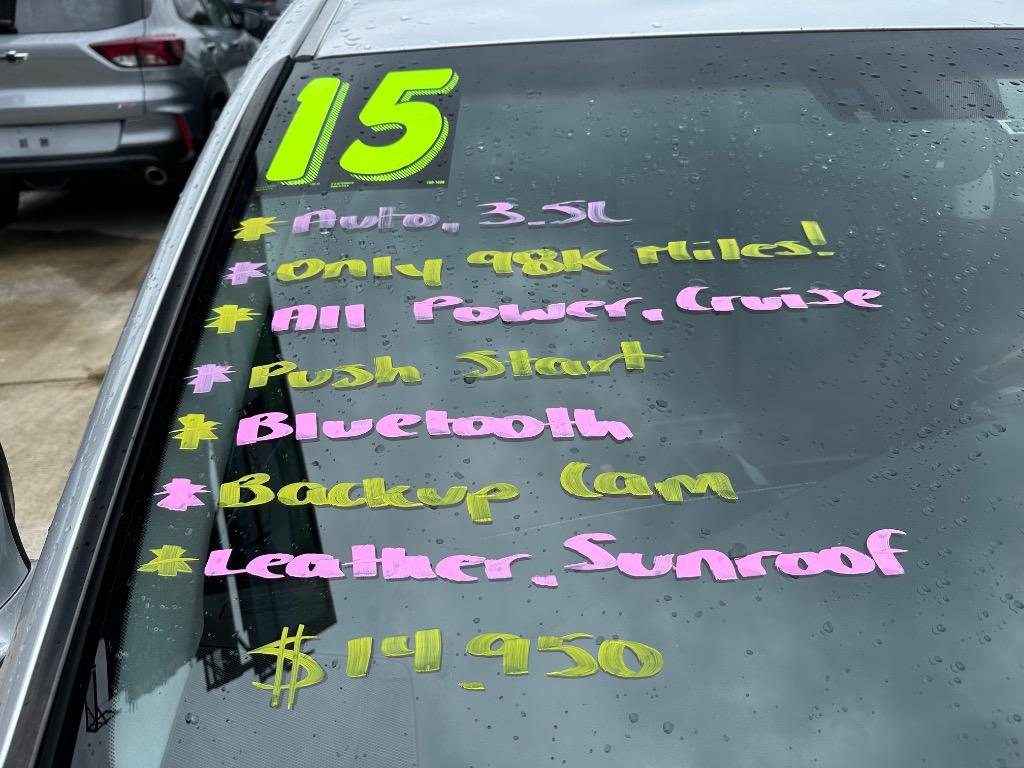 15
* Auto, 3.5L
* Only 98K Miles!
* All Power, Cruise
* Push Start
* Bluetooth
* Backup Cam
* Leather, Sunroof
$14,950